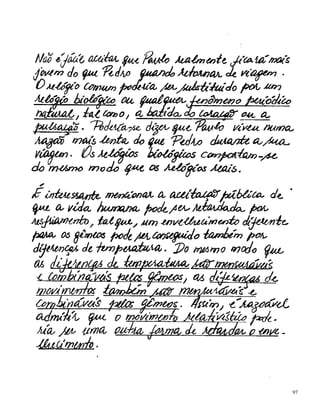 Não é fácil aceitar que Paulo realmente ficará mais
jovem do que Pedro quando retornar de viagem.
O relógio comum poderia ser substituído por um
relógio biológico ou qualquer fenômeno periódico
natural, tal como, a batida do coração ou a
pulsação. Poderia-se dizer que Paulo viveu numa
razão mais lenta do que Pedro durante a sua
viagem. Os relógios biológicos comportam-se
do mesmo modo que os relógios reais.
É interessante mencionar a aceitação pública de
que a vida humana pode ser retardada por
resfriamento, tal que, um envelhecimento diferente
para os gêmeos pode ser conseguido também por
diferenças de temperatura. Do mesmo modo que
as diferenças de temperatura são mensuráveis
e combináveis pelos gêmeos, as diferenças de
movimentos também são mensuráveis e
combináveis pelos gêmeos. Assim, é razoável
admitir que o movimento relativístico pode-
ria ser uma outra forma de retardar o enve-
lhecimento.
97